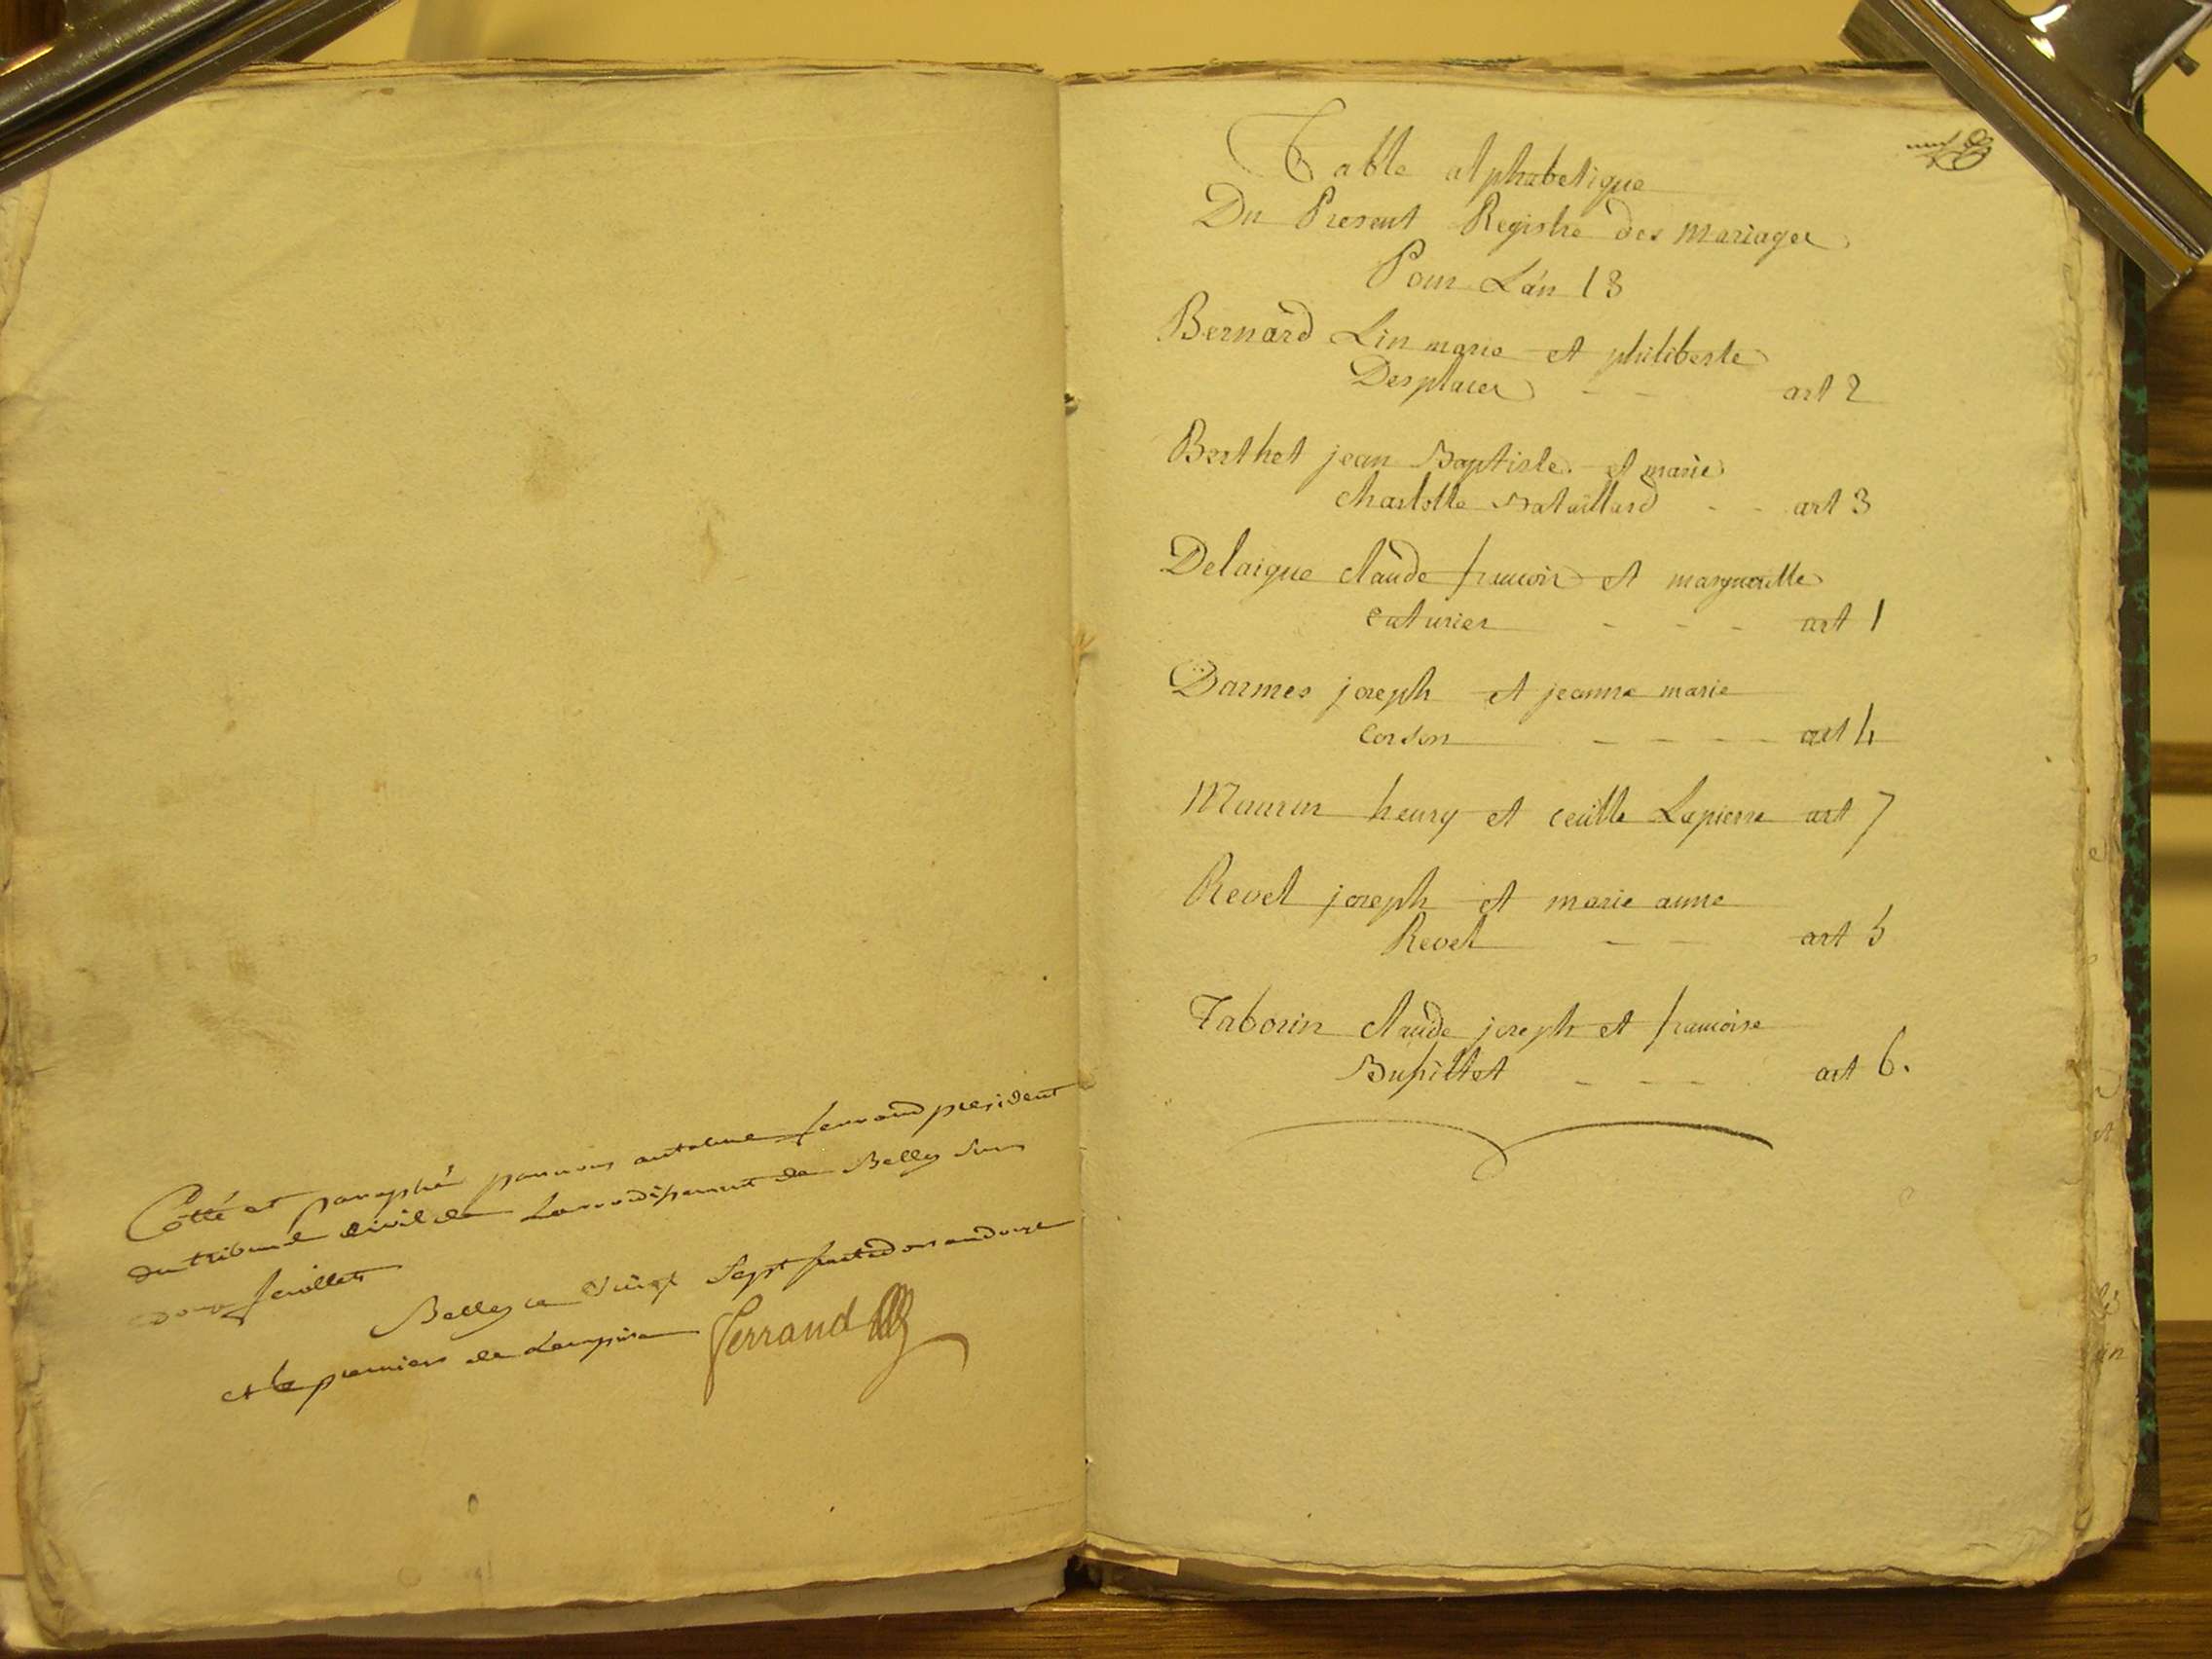 Cotté et paraphé par nous antoine ferrand president
du tribunal civil de Larrondissement de Belley sur
douze feuillets
Belley ce vingt Sept fructidor an douze
et le premier de Lempire ferrand
Table alphabetique
Du Present Registre des mariages
Pour L'an 13
Bernard Lin marie et philiberte
Desplaces - - art 2
Berthet jean Baptiste et marie
charlotte Bataillard - - art 3
Delaigue claude francois et margueritte
caturier - - - art 1
Darmes joseph et jeanne marie
corson - - - - art 4
Maurin henry et cecille Lapierre art 7
Revel joseph et marie anne
Revel - - art 5
Taborin claude joseph et francoise
Bufillet - - - art 6.